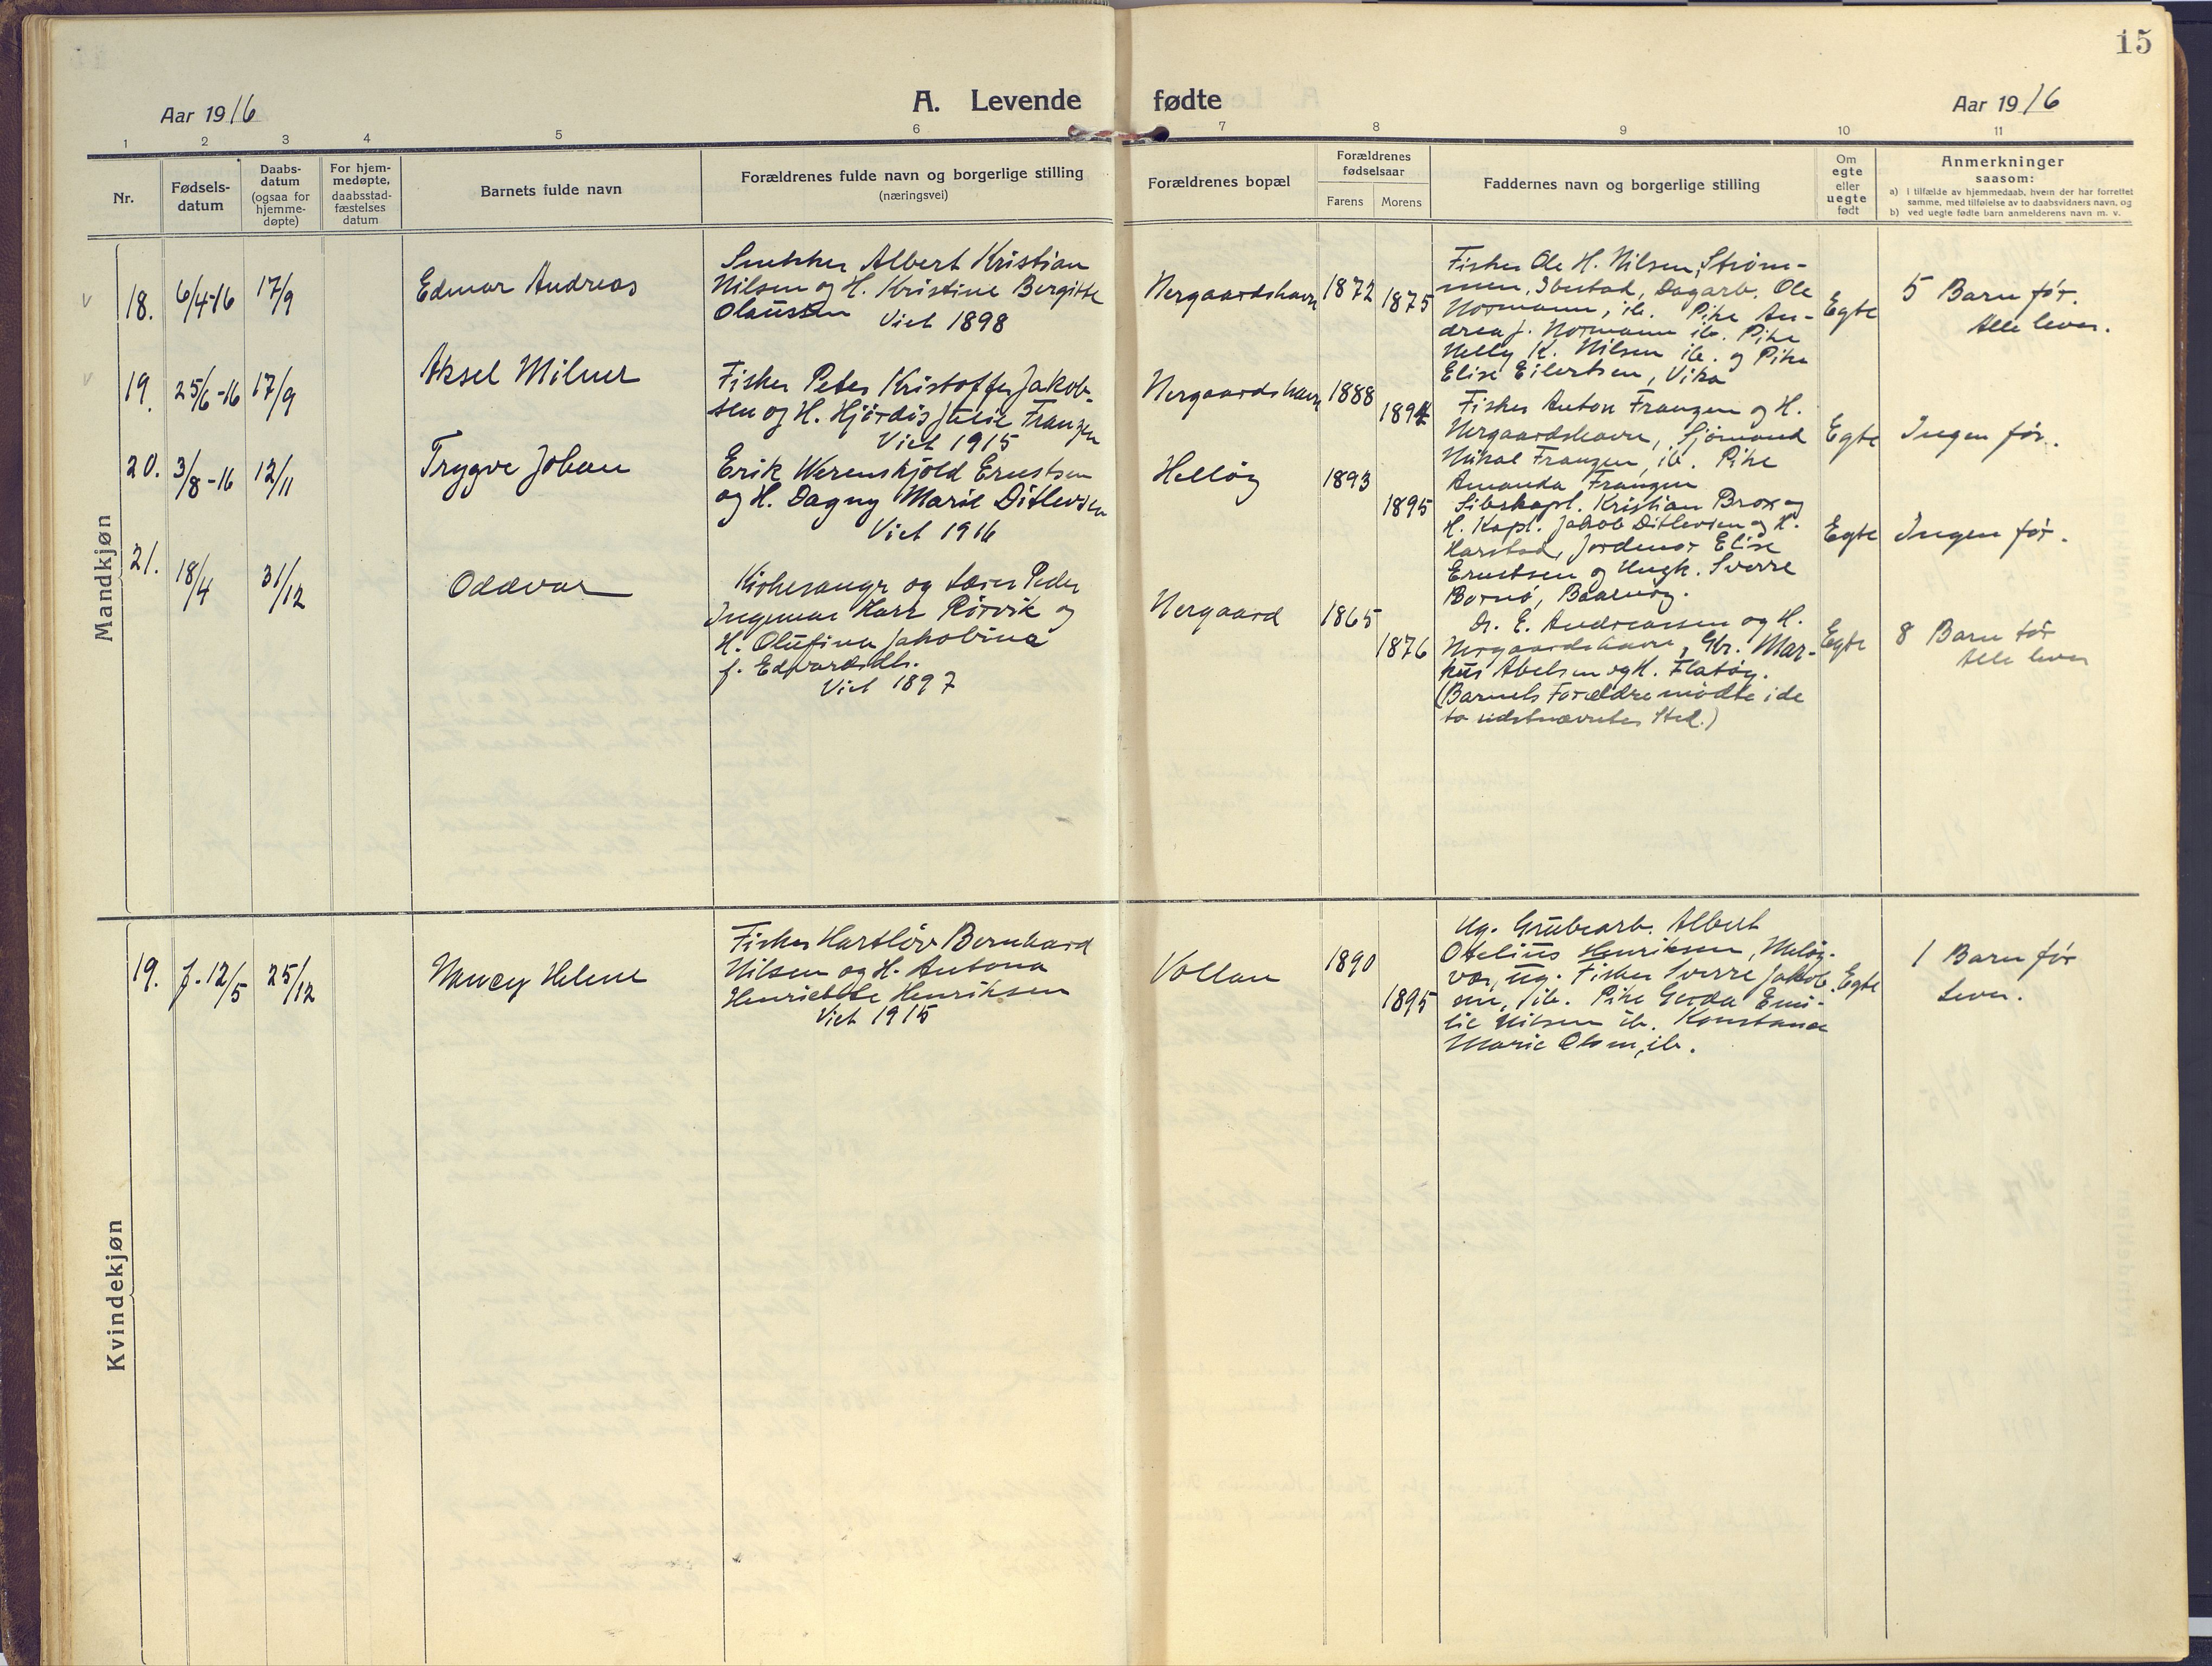 15
Aar 1916
A. Levende fødte
Aar 1916
1 2 3 4 5 6 7 8 9 10 11
Nr.
Fødsels-
datum
Daabs-
datum
(ogsaa for
hjemme-
døpte)
For hjem-
medøpte,
daabsstad-
fæstelses
datum
Barnets fulde navn
Forældrenes fulde navn og borgerlige stilling
(næringsvei)
Forældrenes bopæl
Forældrenes
fødselsaar
Farens Morens
Faddernes navn og borgerlige stilling
Om
egte
eller
uegte
født
Anmerkninger
saasom:
a) i tilfælde av hjemmedaab, hvem der har forrettet
samme, med tilføielse av to daabsvidners navn, og
b) ved uegte fødte barn anmelderens navn m. v.
Mandkjøn
18. 6/4-16 17/9
Edmar Andreas
Snekker Albert Kristian
Nilsen og H. Kristine Bergitte
Olaussen Viet 1898
Nergaardshavn 1872 1875
Fisker Ole H. Nilsen, Strøm-
men, Ibestad, Dagarb. Ole
Normann, ib. Pike An-
drea J. Normann ib. Pike
Nelly K. Nilsen ib. og Pike
Elise Eilertsen, Vika
Egte
5 Barn før.
Alle lever.
19. 25/6-16 17/9
Aksel Milner
Fisker Peter Kristoffer Jakob-
sen og H. Hjørdis Julie Franzen
Viet 1915
Nergaardshavn 1888 1894
Fisker Anton Franzen og H.
Nergaardshavn, Sjømand
Nikal Franzen, ib. Pike
Amanda Franzen
Egte
Ingen før.
20. 3/8-16 12/11
Trygve Johan
Erik Werenskjold Ernstsen
og H. Dagny Marie Ditlevsen
Viet 1916
Helløy 1893 1895
Kristian Brox og
H. Kapt. Jakob Ditlevsen og H.
Harstad, Jordmor Elise
Ernstsen og Ungk. Sverre
Bornø, Baarnøy.
Egte
Ingen før.
21. 18/4 31/12
Oddvar
Kirkesangr og Lærer Peder
Ingemar Karr Rørvik og
H. Olufina Jakobina
f. Edvardsdtr.
Viet 1897
Nergaard 1865 1876
Dr. E. Andreassen og H.
Nergaardshavn, Gbr. Mar-
kus Abelsen og H. Flatøy.
(Barnets Forældre mødte i de
to sidstnævntes Sted.)
Egte
8 Barn før
Alle lever
Kvindekjøn
19. f. 12/5 25/12
Nancy Helene
Fisker Hartløv Bernhard
Nilsen og H. Antona
Henriette Henriksen
Viet 1915
Vollan 1890 1895
Ug. Grubearb. Albert
Otelius Henriksen, Meløy-
vær, ug. Fisker Sverre Jakob-
sen, ib. Pike Gerda Emi-
lie Nilsen ib. Konstanse
Marie Olsen, ib.
Egte
1 Barn før
Lever.